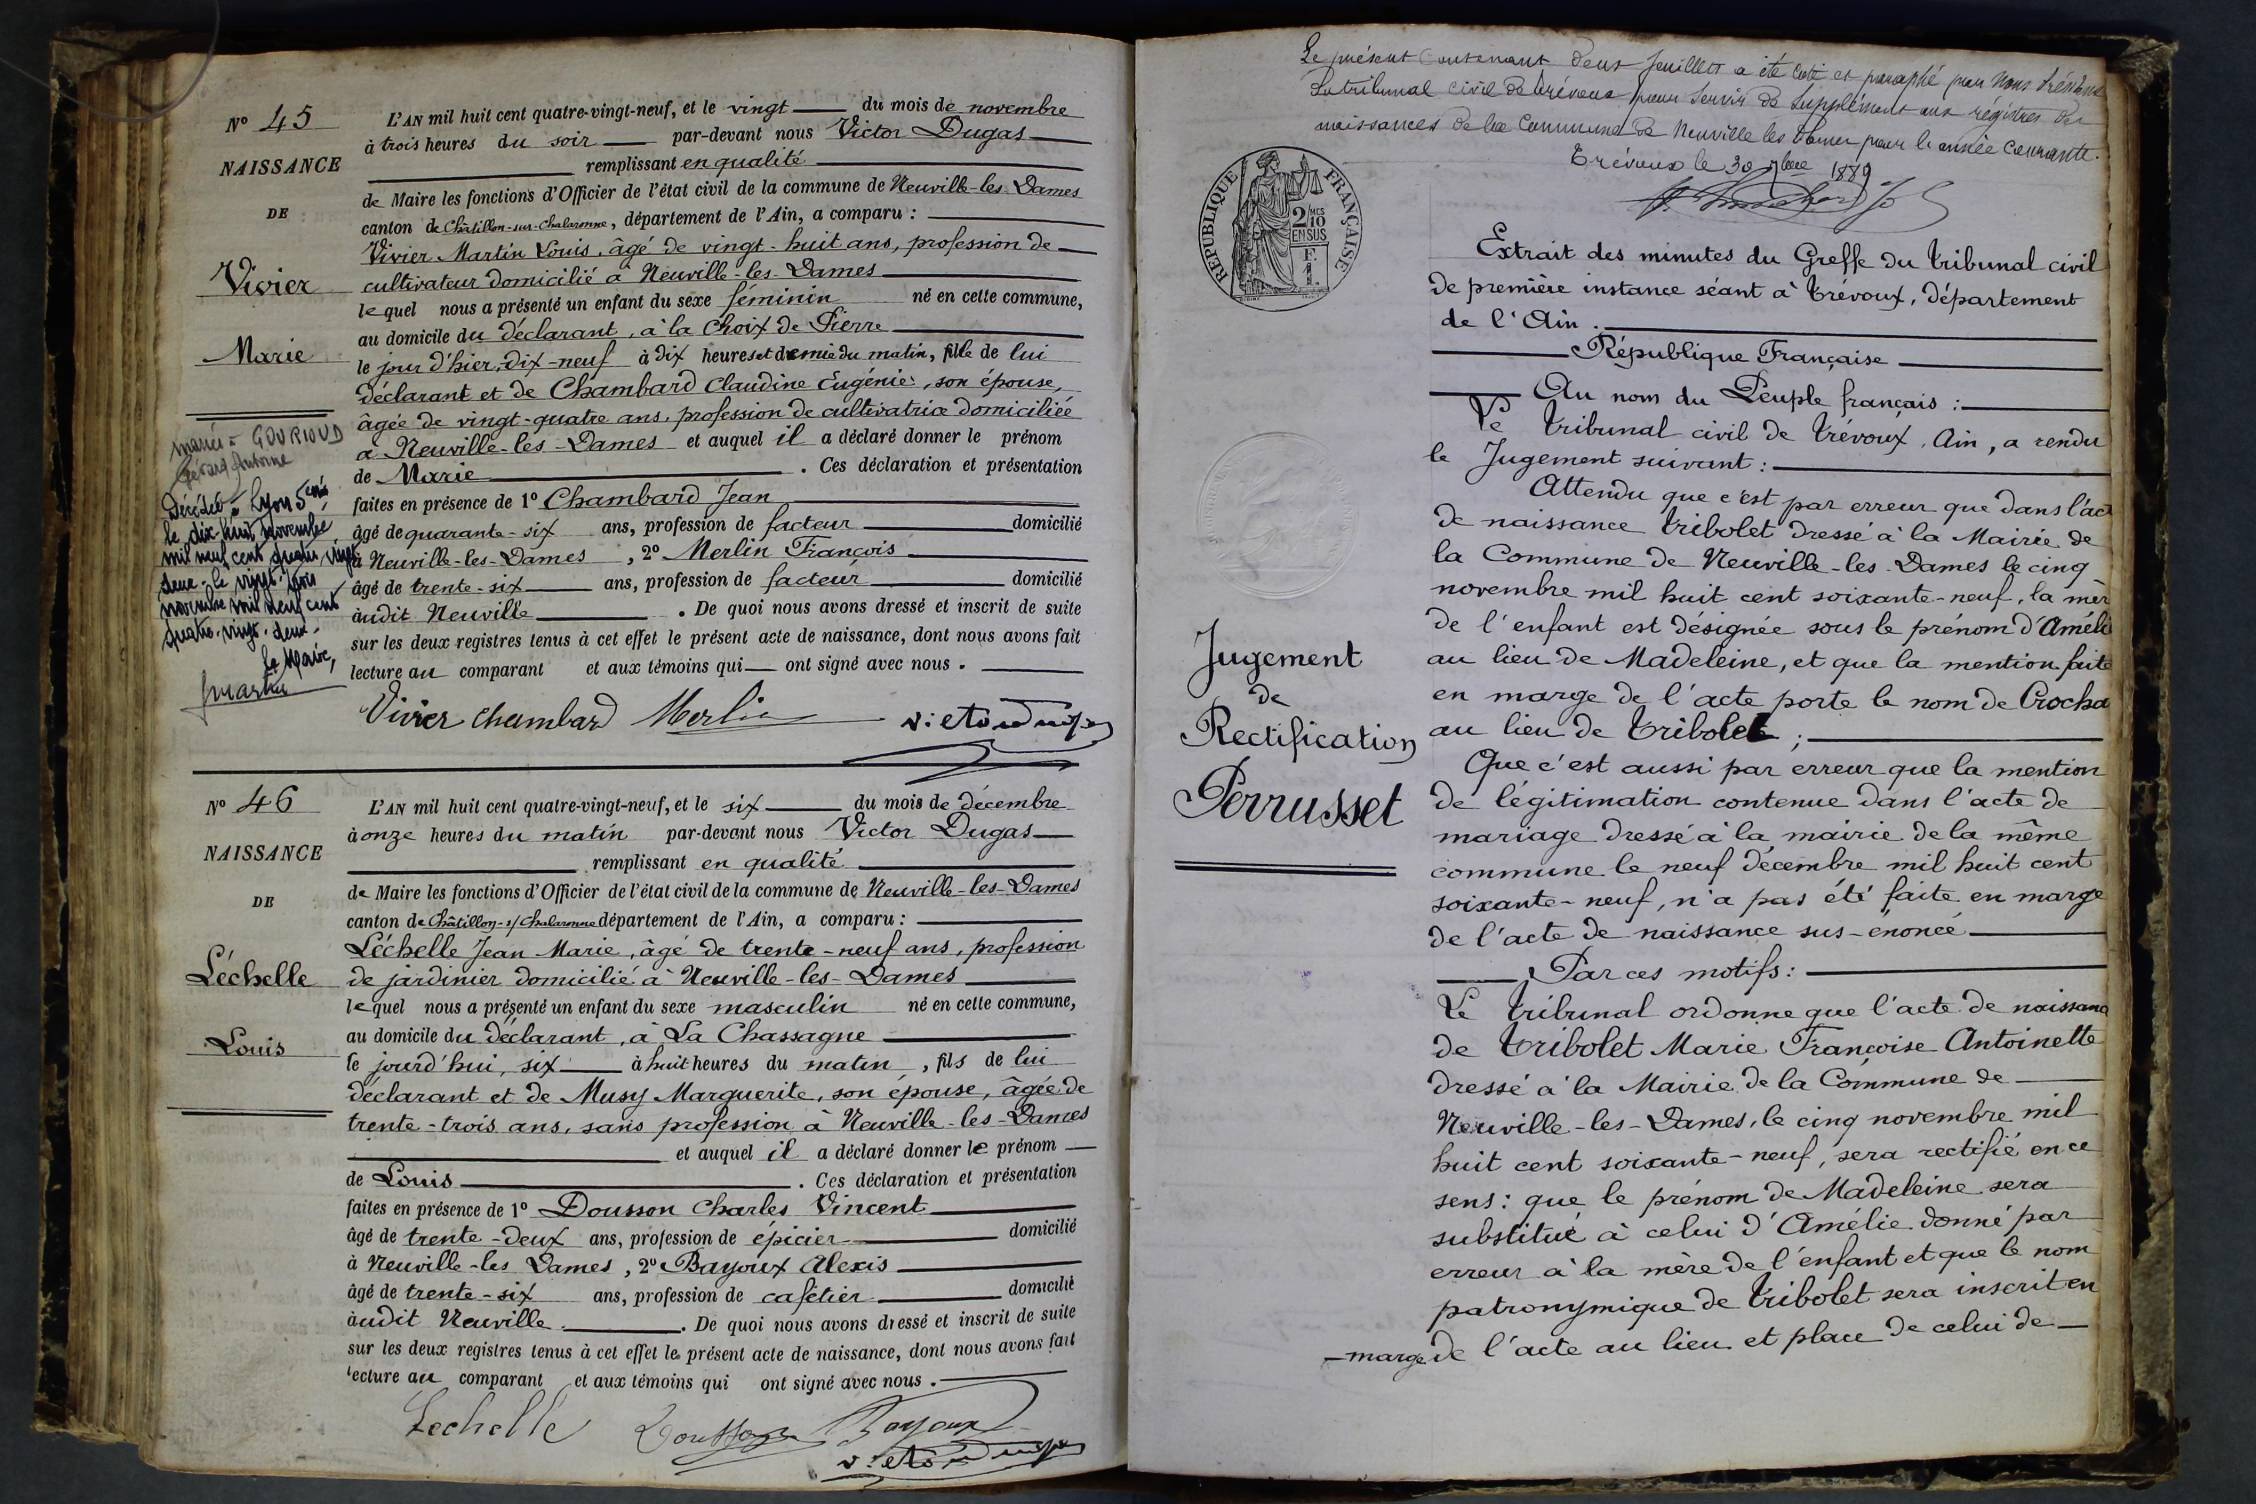 N° 45
NAISSANCE
DE
Vivier
Marie
mariée à GOURIOUD
Gérard Antoine
Décédée à Lyon 5ème
le dix huit novembre
mil neuf cent quatre vingt
deux. le vingt trois
novembre mil neuf cent
quatre-vingt-deux.
Le Maire,
L'AN mil huit cent quatre-vingt-neuf, et le vingt du mois de novembre
à trois heures du soir par-devant nous Victor Dugas
remplissant en qualité
de Maire les fonctions d'Officier de l'état civil de la commune de Neuville-les-Dames
canton de Châtillon-sur-Chalaronne, département de l'Ain, a comparu :
Vivier Martin Louis, âgé de vingt-huit ans, profession de
cultivateur domicilié à Neuville-les-Dames
lequel nous a présenté un enfant du sexe féminin né en cette commune,
au domicile du déclarant, à la Choix de Pierre
le jour d'hier, dix-neuf à dix heures et demie du matin, fille de lui
déclarant et de Chambard Claudine Eugénie, son épouse,
âgée de vingt-quatre ans, profession de cultivatrice domiciliée
à Neuville-les-Dames et auquel il a déclaré donner le prénom
de Marie . Ces déclaration et présentation
faites en présence de 1° Chambard Jean
âgé de quarante-six ans, profession de facteur domicilié
à Neuville-les-Dames, 2° Merlin François
âgé de trente-six ans, profession de facteur domicilié
àudit Neuville . De quoi nous avons dressé et inscrit de suite
sur les deux registres tenus à cet effet le présent acte de naissance, dont nous avons fait
lecture au comparant et aux témoins qui ont signé avec nous.
Vivier Chambard Merlin Victor Dugas
N° 46
NAISSANCE
DE
Léchelle
Louis
L'AN mil huit cent quatre-vingt-neuf, et le six du mois de décembre
à onze heures du matin par-devant nous Victor Dugas
remplissant en qualité
de Maire les fonctions d'Officier de l'état civil de la commune de Neuville-les-Dames
canton de Châtillon-s/Chalaronne département de l'Ain, a comparu :
Léchelle Jean Marie, âgé de trente-neuf ans, profession
de jardinier domicilié à Neuville-les-Dames
lequel nous a présenté un enfant du sexe masculin né en cette commune,
au domicile du déclarant, à La Chassagne
le jourd'hui, six à huit heures du matin, fils de lui
déclarant et de Musy Marguerite, son épouse, âgée de
trente-trois ans, sans profession à Neuville-les-Dames
et auquel il a déclaré donner le prénom
de Louis . Ces déclaration et présentation
faites en présence de 1° Dousson Charles Vincent
âgé de trente-deux ans, profession de épicier domicilié
à Neuville-les Dames, 2° Bayoux Alexis
âgé de trente-six ans, profession de cafetier domicilié
àudit Neuville . De quoi nous avons dressé et inscrit de suite
sur les deux registres tenus à cet effet le présent acte de naissance, dont nous avons fait
lecture au comparant et aux témoins qui ont signé avec nous.
Lechelle Dousson Bayoux
Victor Dugas
Le présent contenant deux feuillets a été coté et paraphé par Nous Président
du tribunal civil de Trévoux pour servir de supplément aux régistres des
naissances de la Commune de Neuville les Dames pour l'année courante.
Trévoux le 30 7bre 1889
RÉPUBLIQUE FRANÇAISE
2/10 MES
EN SUS
F.
1.
Extrait des minutes du Greffe du tribunal civil
de première instance séant à Trévoux, département
de l'Ain.
République Française
Au nom du Peuple français :
Le tribunal civil de Trévoux, Ain, a rendu
le Jugement suivant :
Jugement
de
Rectification
Perrusset
Attendu que c'est par erreur que dans l'act
de naissance Tribolet dressé à la Mairie de
la Commune de Neuville-les-Dames le cinq
novembre mil huit cent soixante-neuf, la mèr
de l'enfant est désignée sous le prénom d'Améli
au lieu de Madeleine, et que la mention faite
en marge de l'acte porte le nom de Crocha
au lieu de Tribolet ;
Que c'est aussi par erreur que la mention
de légitimation contenue dans l'acte de
mariage dressé à la mairie de la même
commune le neuf décembre mil huit cent
soixante-neuf, n'a pas été faite en marge
de l'acte de naissance sus-énoncé
Par ces motifs :
Le tribunal ordonne que l'acte de naissanc
de Tribolet Marie Françoise Antoinette
dressé à la Mairie de la Commune de
Neuville-les-Dames, le cinq novembre mil
huit cent soixante-neuf, sera rectifié en ce
sens : que le prénom de Madeleine sera
substitué à celui d'Amélie donné par
erreur à la mère de l'enfant et que le nom
patronymique de Tribolet sera inscrit en
marge de l'acte au lieu et place de celui de